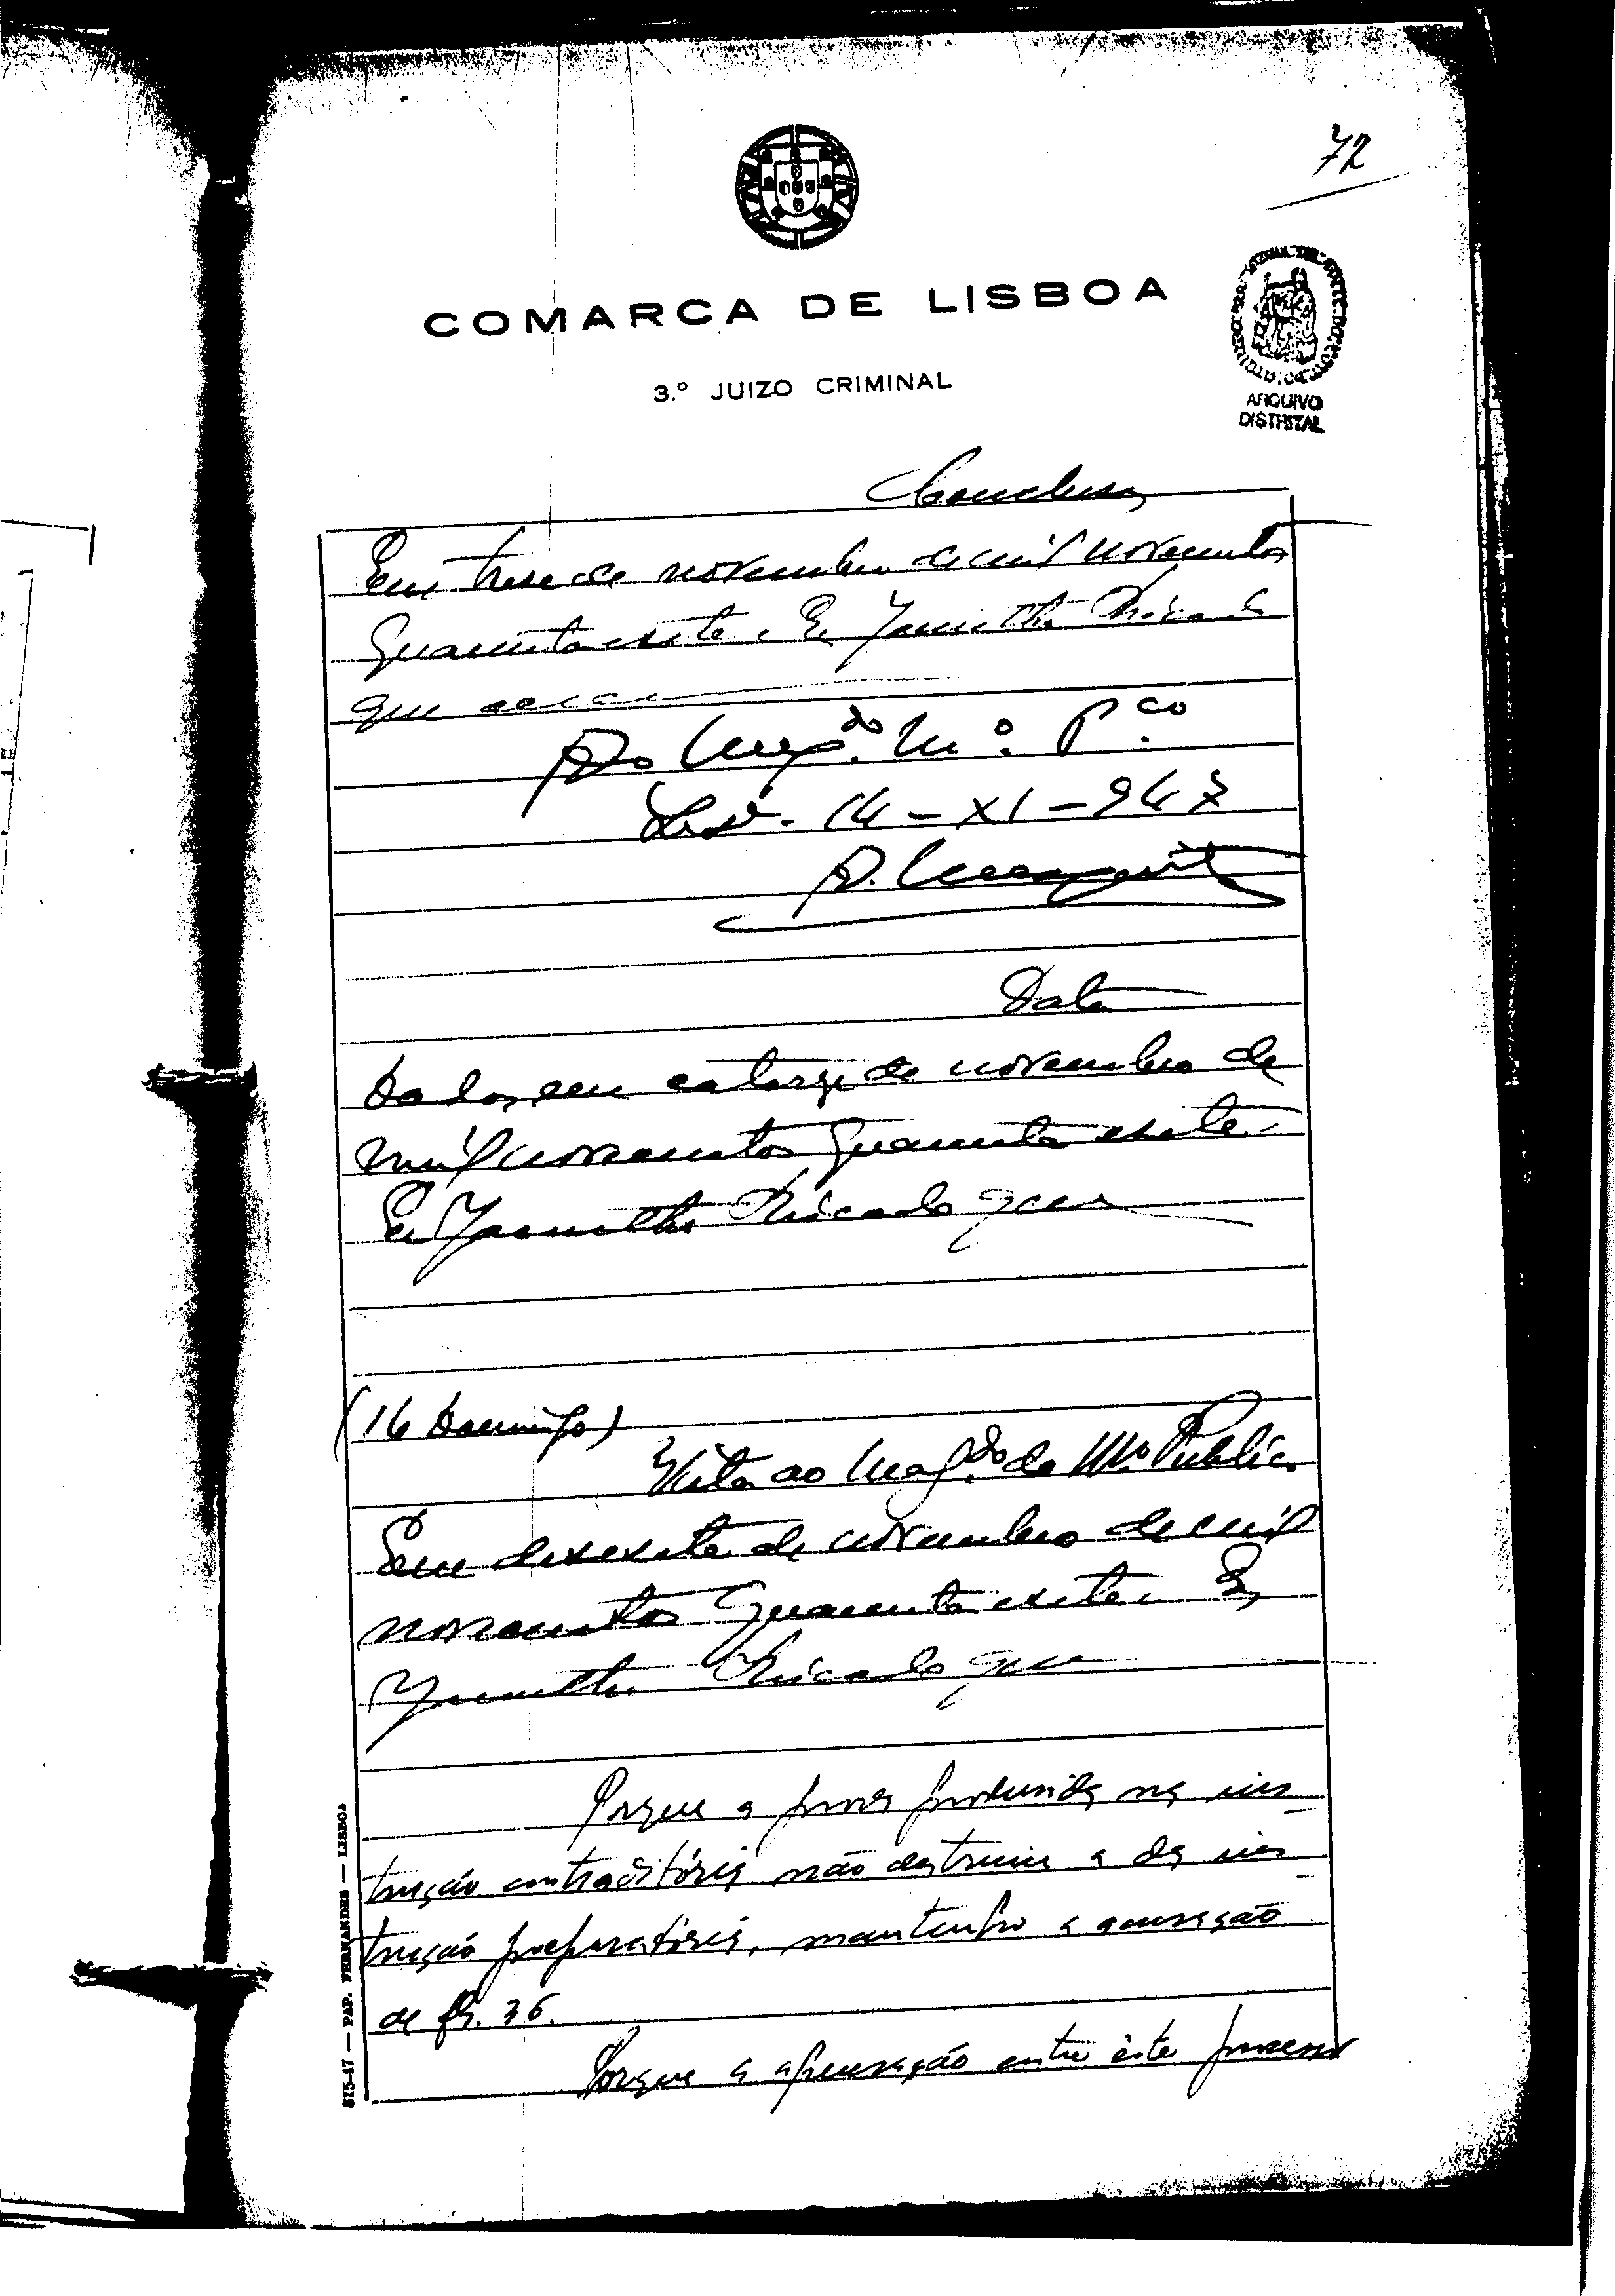 72
COMARCA DE LISBOA
3.º JUIZO CRIMINAL
ARQUIVO
DISTRITAL
Conclusão
Em trese de novembro de mil novecentos
quarenta e sete. Eu
que
Ao Mag.do M.º P.co
Lxª. 14-XI-947
A.
Data
Dado, em catorze de novembro de
mil novecentos quarenta e sete.
Eu
(16 Domingo)
Vista ao Mag.do do Mº Publico
Em desesete de novembro de mil
novecentos quarenta e sete. Eu
Porque a prova produzida na ins
trução contraditória não destruiu a da ins
trução preparatória, mantenho a acusação
de fls. 36.
Porque a apensação entre êste processo
815-47 — PAP. FERNANDES — LISBOA